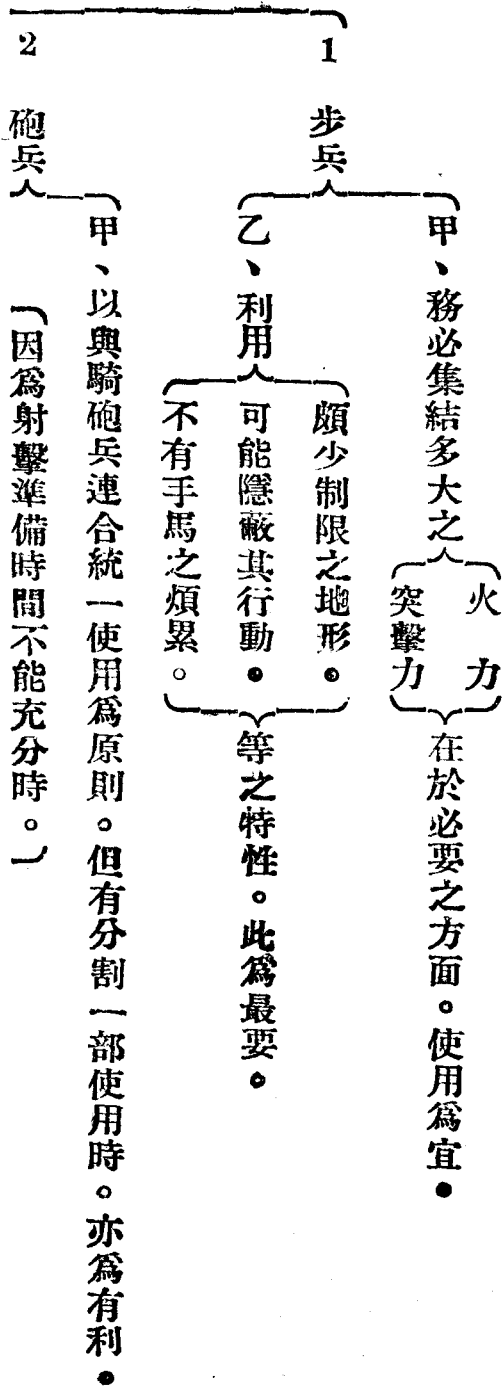 1 步兵
甲、務必集結多大之
火力
突擊力
在於必要之方面。使用爲宜。
乙、利用
頗少制限之地形。
可能隱蔽其行動。
不有手馬之煩累。
等之特性。此爲最要。
2 砲兵
甲、以與騎砲兵連合統一使用爲原則。但有分割一部使用時。亦爲有利。
因爲射擊準備時間不能充分時。